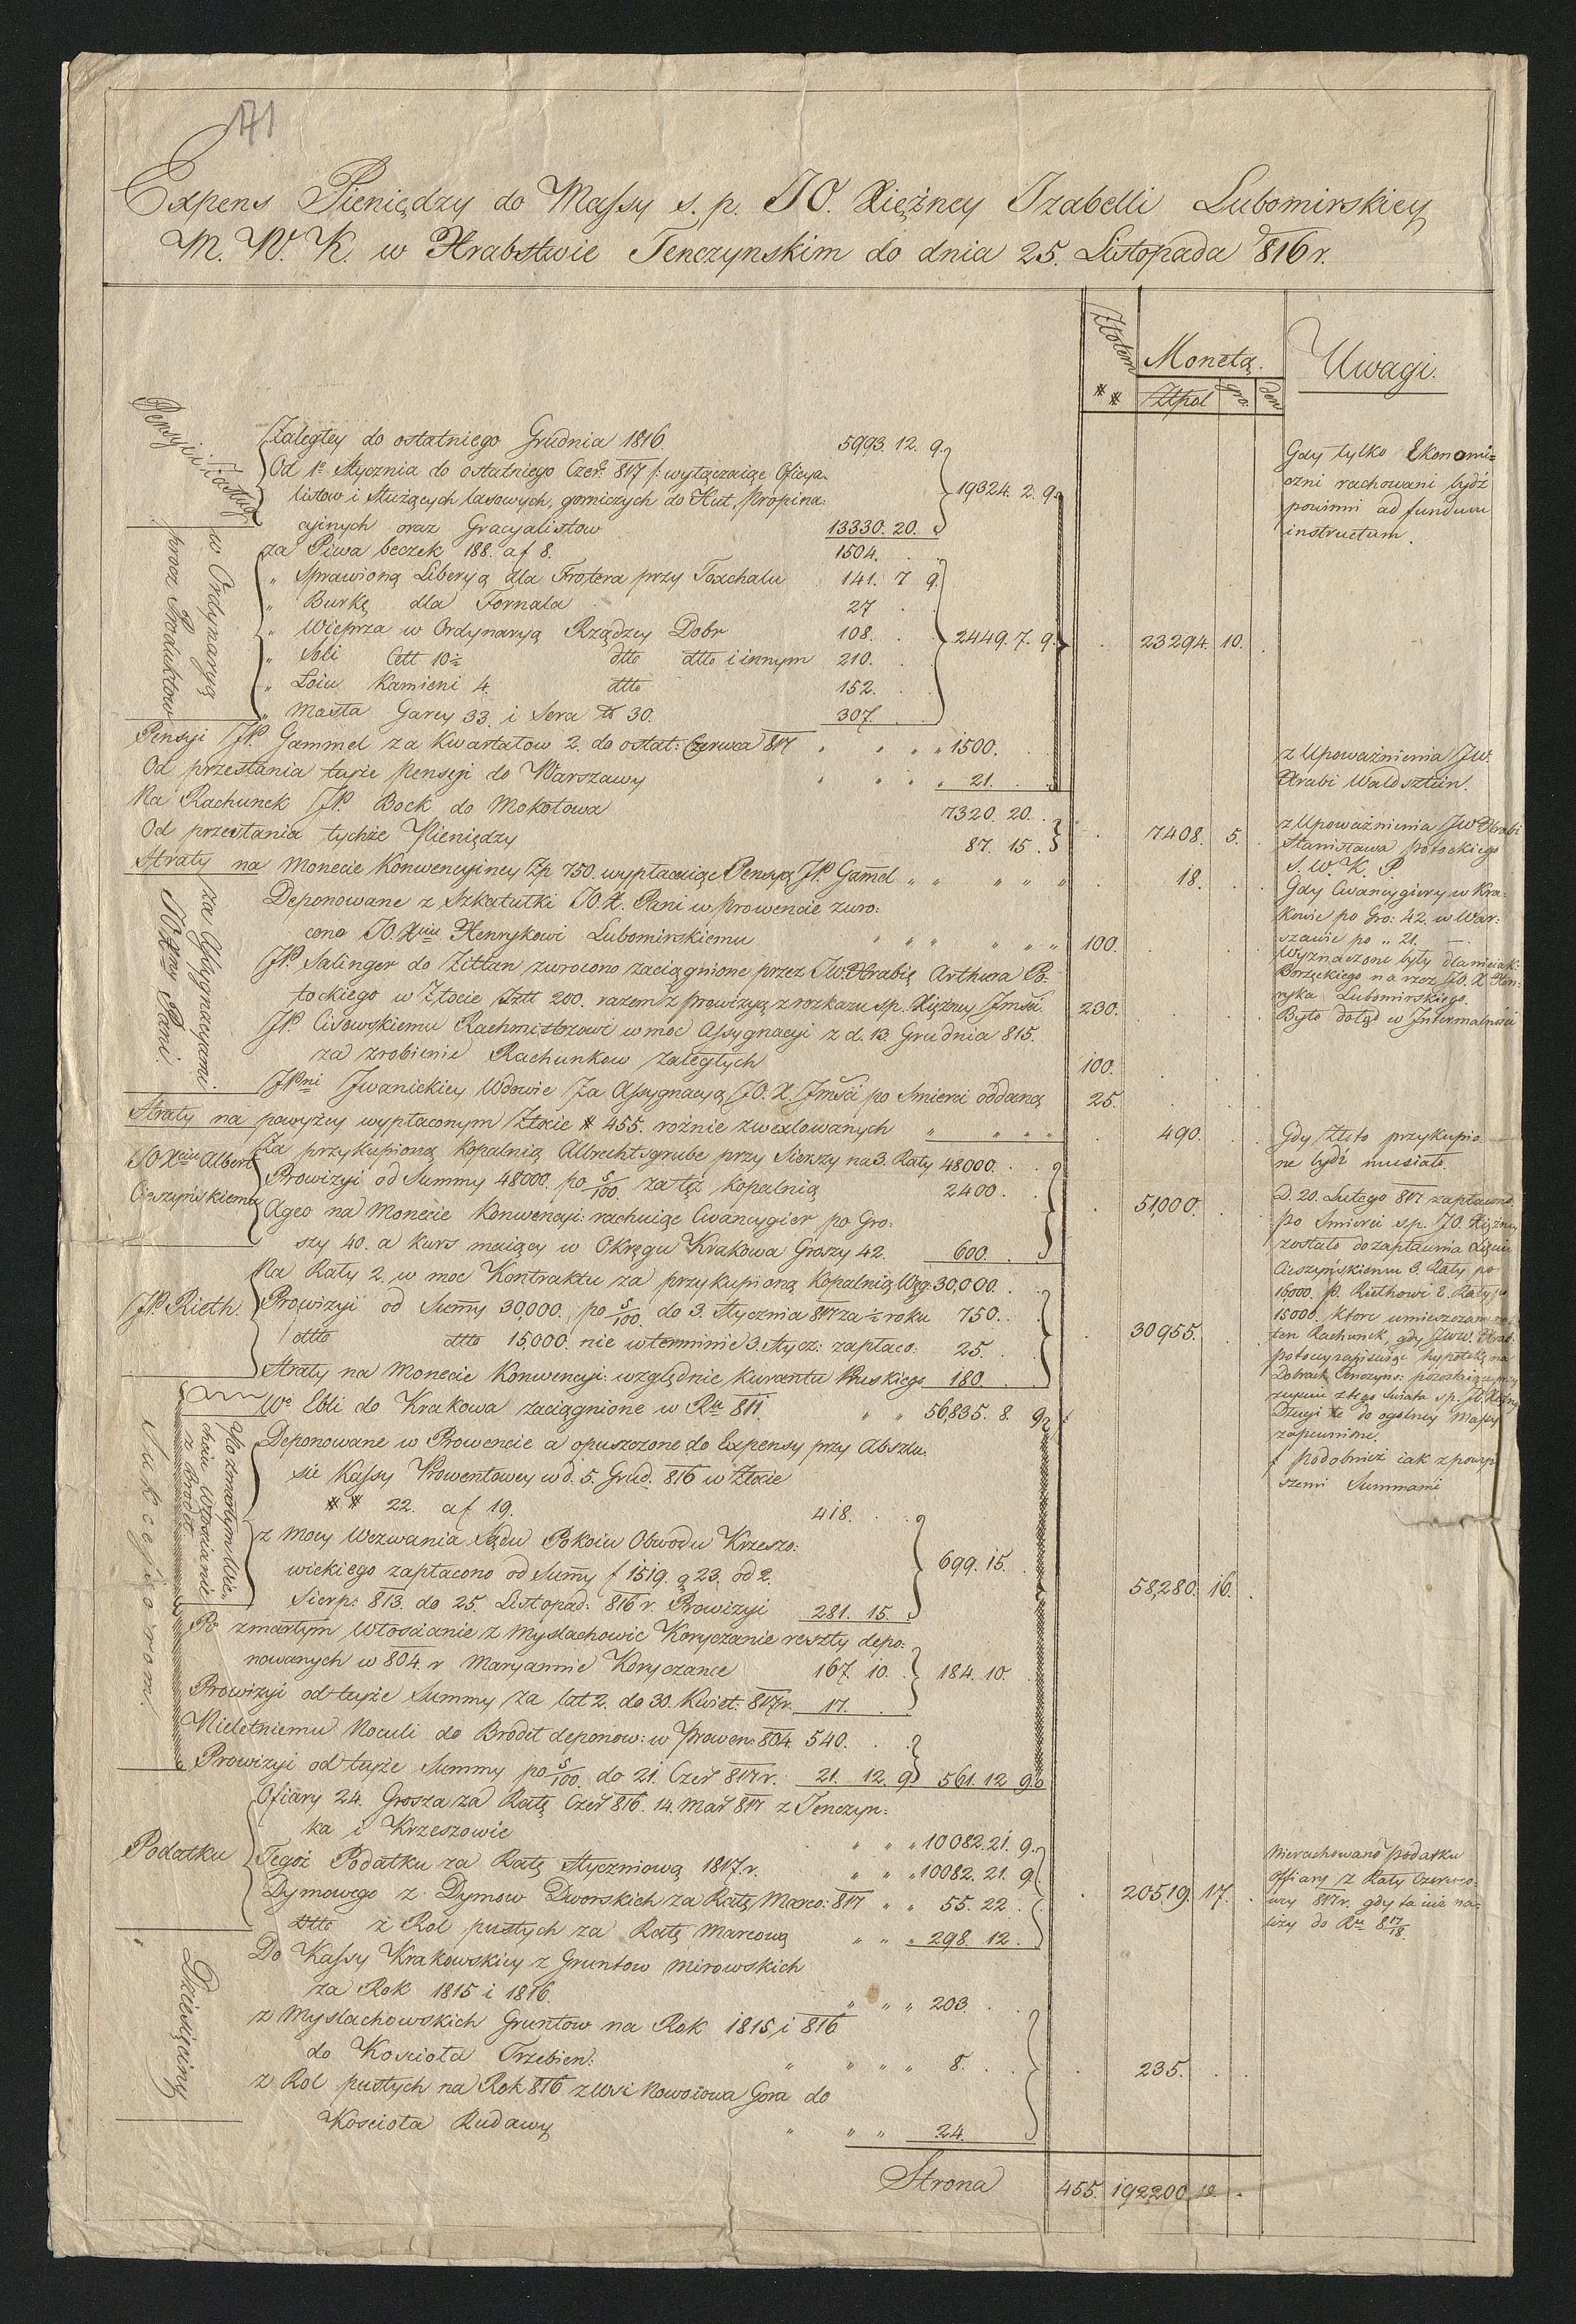 171
Expens Pieniędzy do Massy s. p. JO. Xiężney Izabelli Lubomirskiey
M. W. K. w Hrabstwie Tenczynskim do dnia 25. Listopada 816 r.
Złotem
Monetą.
Uwagi.
** Ztpol gro: den
Pensyi i Zasług
Zaległey do ostatniego Grudnia 1816 5993. 12. 9.
Od 1o Stycznia do ostatniego Czer: 817 /: wyłączaiąc Oficya-
listow i Służących lasowych, gorniczych do Hut, Propina: 19324. 2. 9.
cyinych oraz Gracyalistow 13330. 20.
Gdy tylko Ekonomi=
czni rachowani bydź
powinni ad fundum
instructum.
w Ordynaryą
prosa Produktow
za Piwa beczek 188. af 8. 1504.
„ Sprawioną Liberyą dla Frotera przy Toxchalu 141. 7 9.
„ Burkę dla Fornala 27
„ Wieprza w Ordynaryą Rządzcy Dobr 108. 2449. 7. 9. 23294. 10.
„ Soli Cett 10½ dtto dtto i innym 210.
„ Łoiu Kamieni 4. dtto 152.
„ Masła Garcy 33. i Sera 30. 307.
Pensyi JP. Gammel za Kwartałow 2. do ostat: Czerwca 817 „ „ „ „ 1500.
Od przesłania tayże Pensyi do Warszawy „ „ „ „ 21.
z Upoważnienia JW.
Hrabi Waldsztein.
Na Rachunek JP. Bock do Mokotowa 7320. 20.
Od przesłania tychże Pieniędzy 87. 15. 7408. 5.
z Upoważnienia JW Hrabi
Stanisława Potockiego
S. W. K. P.
Straty na Monecie Konwencyiney Zp 750. wypłacaiąc Pensyą JP. Gamel „ „ „ „ „ 18.
Gdy Cwancygiery w Kra:
kowie po Gro: 42. w War:
szawie po „ 21. —
za Assygnacyami
JO. Xney Pani.
Deponowane z Szkatułki JO. X. Pani w Prowencie zwro:
cono JO. Xciu Henrykowi Lubomirskiemu „ „ „ „ „ „ 100.
Wyznaczone były dla
Borzęckiego na rzez JO. X Hen:
ryka Lubomirskiego.
JP. Salinger do Zittan zwrocono zaciągnione przez JW. Hrabię Arthura Po-
tockiego w Złocie Sztt 200. razem z prowizyą z rozkazu sp. Xiężney Jmści 230.
Było dotąd w Intermalności
JP. Cisowskiemu Rachmistrzowi w moc Assygnacyi z d. 13. Grudnia 815.
za zrobienie Rachunkow zaległych 100.
JPni Jwanickiey Wdowie za Assygnacyą JO. X. Jmści po Smierci oddaną 25.
Straty na powyżey wypłaconym Złocie # 455. rożnie zwexlowanych „ „ „ „ 490.
Gdy Złoto przykupio
ne bydź musiało.
JO Xciu Albert
Cieszyńskiemu
Za przykupioną Kopalnią Albrechtsgrube przy Sierzy na 3. Raty 48000.
Prowizyi od Summy 48000. po 5/100. za tęż Kopalnią 2400. 51,000.
Ageo na Monecie Konwencyi: rachuiąc Cwancygier po Gro:
szy 40. a kurs maiący w Okręgu Krakowa Groszy 42. 600.
D. 20. Lutego 817 zapłacono
po Smierci s.p. JO. Xiężney
zostało do zapłacenia Xięciu
Cieszyńskiemu 3. Raty po
16000. P. Riethowi 2. Raty po
15000. ktore umieszczam
ten Rachunek, gdy JWW. Hrab:
Potoccy zapisuiąc hypotekę na
Dobrach Tenczyns: pozostaią przy
zeysciu z tego Świata s.p. JO. Xiężny
Długi te do ogolney Massy
zapewnione.
JP. Rieth.
Na Raty 2. w moc Kontraktu za przykupioną Kopalnią Węg: 30,000.
Prowizyi od Summy 30,000. po 5/100. do 3. Stycznia 817 za ½ roku 750. 30955.
dtto dtto 15,000. nie w terminie 3. Stycz: zapłaco: 25.
Straty na Monecie Konwencyi: względnie Kurantu Pruskiego 180.
Sukcessorom.
We Ebli do Krakowa zaciągnione w Rku 811. „ „ 56,835. 8. 9
podobnież iak z powyż
szemi Summami
Po zmarłym
włościanie
z Brodeł
Deponowane w Prowencie a opuszczone do Expensy przy Abszlu:
sie Kassy Prowentowey w d. 5. Grud. 816 w Złocie
** 22. af 19. 418.
z Mocy Wezwania Sądu Pokoiu Obwodu Krzeszo:
wickiego zapłacono od Summy f 1519. g 23. od 2. 699. 15.
Sierp: 813. do 25. Listopad: 816 r. Prowizyi 281. 15. 58,280. 16.
Po zmarłym Włościanie z Myslachowic Koryczanie reszty depo:
nowanych w 804. r Maryannie Koryczance 167. 10. 184. 10.
Prowizyi od tayże Summy za lat 2. do 30. Kwiet: 817 r. 17.
Nieletniemu Noculi do Brodeł deponow: w Prowen: 804. 540.
Prowizyi od tayże Summy po 5/100. do 21. Czer 817 r. 21. 12. 9 561. 12 9.
Podatku
Ofiary 24. Grosza za Ratę Czer 816. 14. Mar 817 z Tenczyn:
ka i Krzeszowic „ „ „ 10082. 21. 9.
Tegoż Podatku za Ratę Styczniową 1817. r. „ „ „ 10082. 21. 9
Dymowego z Dymow Dworskich za Ratę Marco: 817 „ „ 55. 22. 20519. 17.
dtto z Rol pustych za Ratę Marcową „ „ „ 298. 12.
Nierachowano Podatku
Offiary z Raty Czerwco-
wey 817 r. gdy ta nie na-
leży do Rku 817/18.
Dziesięciny
Do Kassy Krakowskiey z Gruntow Mirowskich
za Rok 1815 i 1816. „ „ „ 203.
z Myslachowskich Gruntow na Rok 1815 i 816
do Koscioła Trzebien: „ „ „ „ 8. 235.
z Rol pustych na Rok 816 z Wsi Nowoiowa Gora do
Koscioła Rudawy „ „ „ 24.
Strona 455. 192200 18.